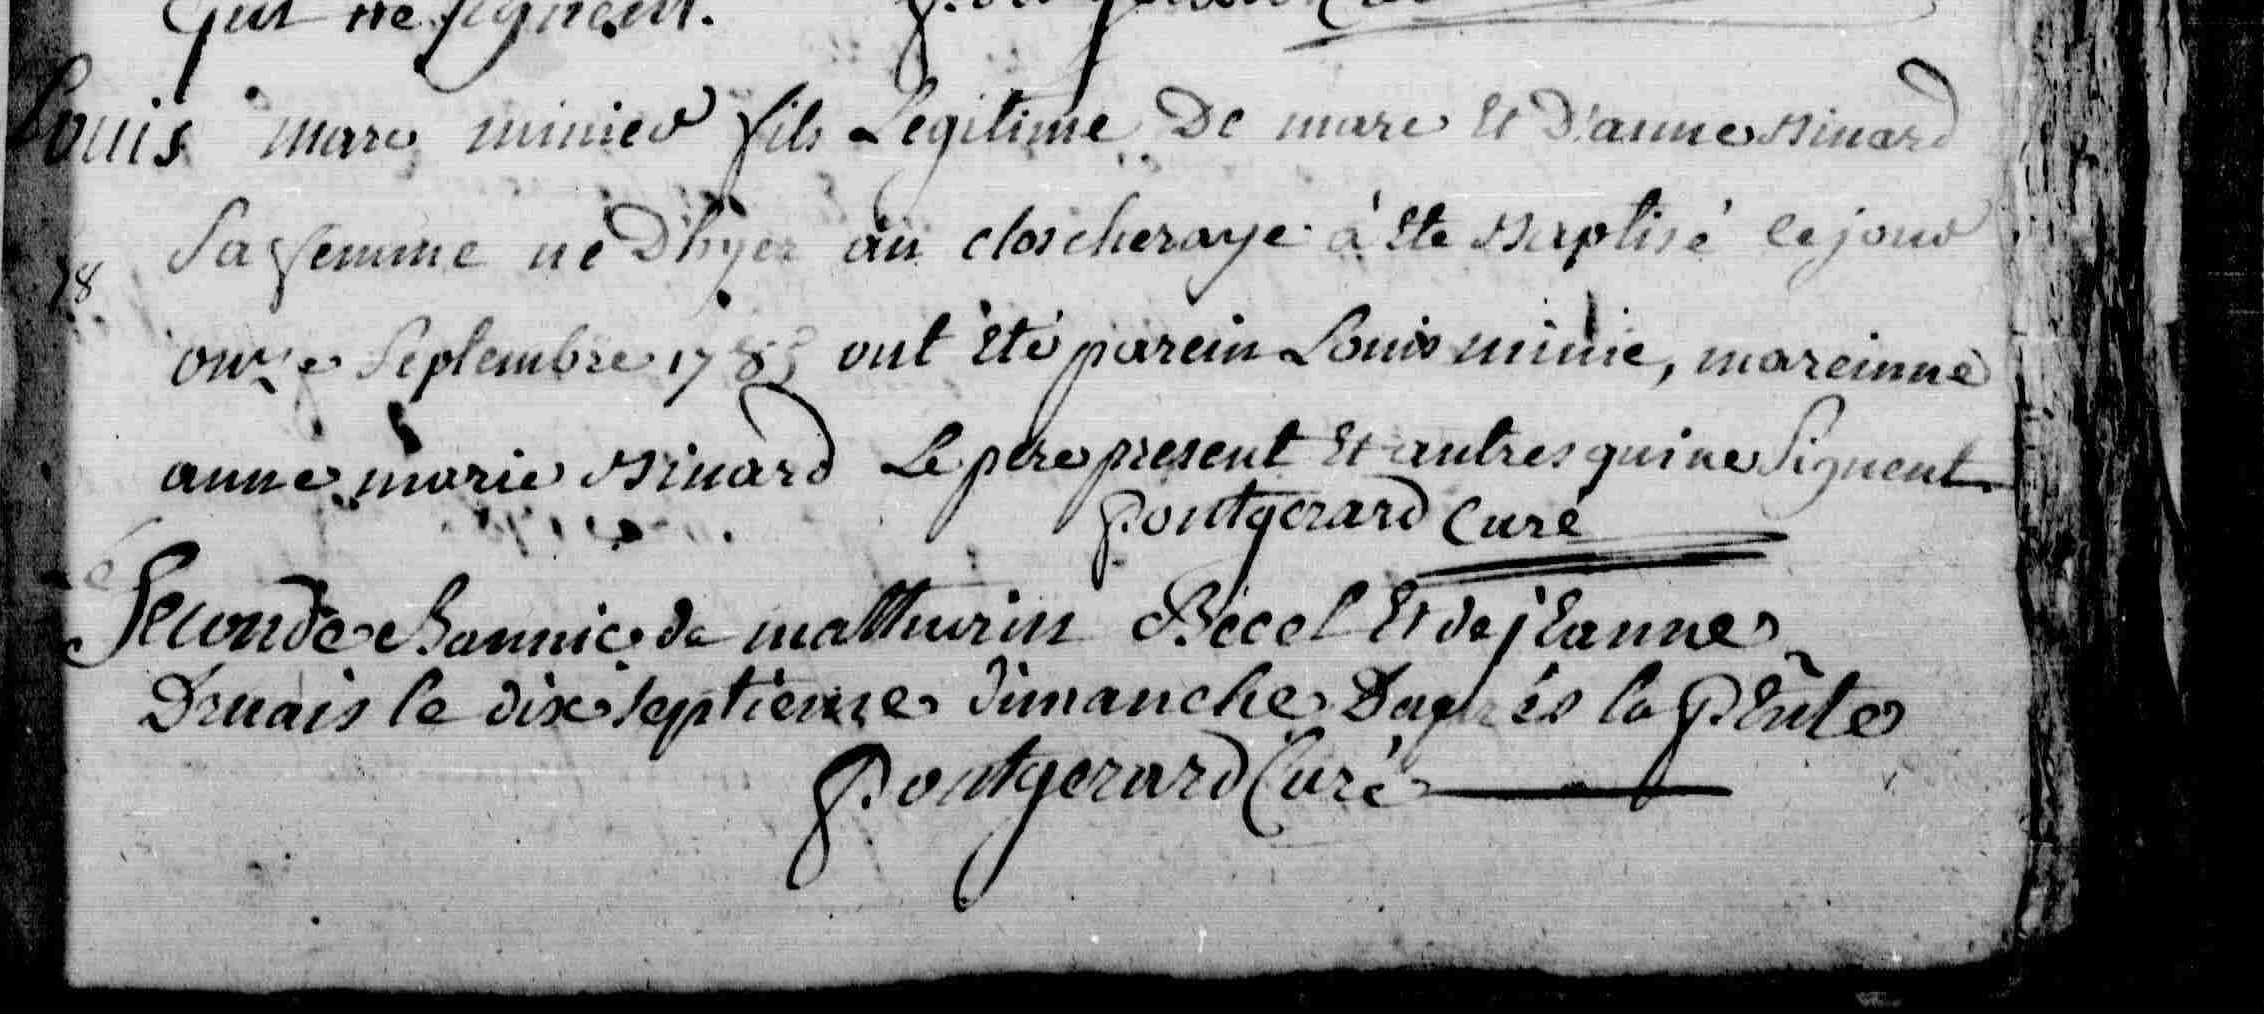 qui ne signent. Pontgerard Curé
Louis marc minier fils Legitime De marc Et D'anne Binard
Sa femme né Dhyer au closcheraye à Ete Baptisé ce jour
78
onze Septembre 1785 ont été parein Louis minie, mareinne
anne marie Binard Le pere present Et autres qui ne Signent
Pontgerard Curé
Seconde Bannie de mathurin Becel Et de jEanne
Druais le dix septieme dimanche Daprés la PEnte
Pontgerard Curé